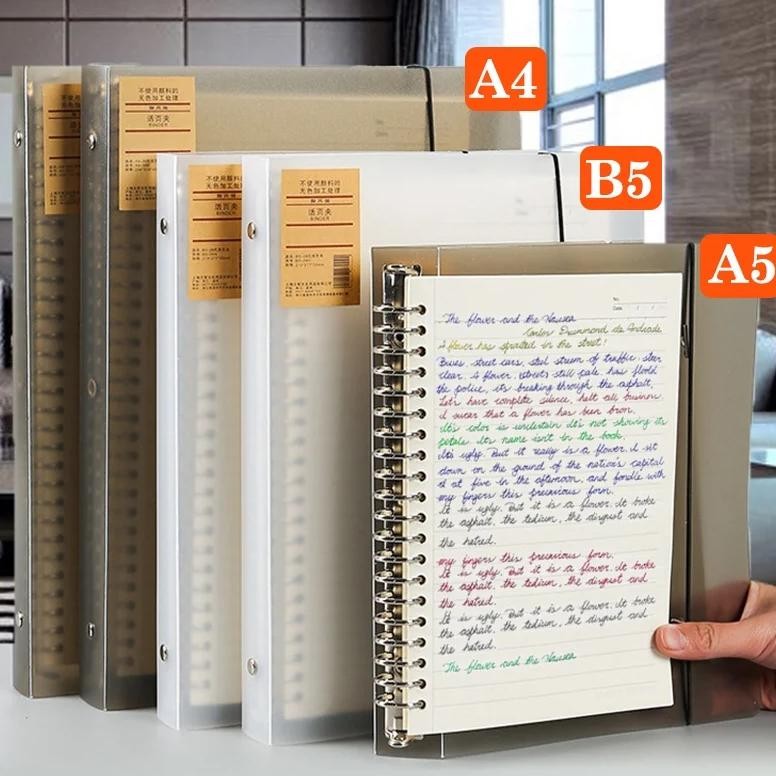 A4
B5
A5
不使用颜料的
无色加工处理
活页夹
BINDER
不使用颜料的
无色加工处理
活页夹
BINDER
No.
Date
The flower and the Nausea
Carlos Drummond de Andrade
A flower has sprouted in the street!
Buses, street cars, steel stream of traffic steer
clear. A flower, still pale, has
the police, it's breaking through the asphalt.
Let's have complete silence, halt all business
I swear that a flower has been born.
It's color is uncertain It's not showing its
petals. It's name isn't in the book.
It's ugly. But it really is a flower. I sit
down on the ground of the nation's capital
at five in the afternoon, and fondle with
my fingers this precarious form.
It is ugly. But it is a flower. It broke
the asphalt, the tedium, the disgust and
the hatred.
my fingers this precarious form.
It is ugly. But it is a flower. It broke
the asphalt, the tedium, the disgust and
the hatred.
It is ugly. But it is a flower. It broke
the asphalt, the tedium, the disgust and
the hatred.
The flower and the Nausea